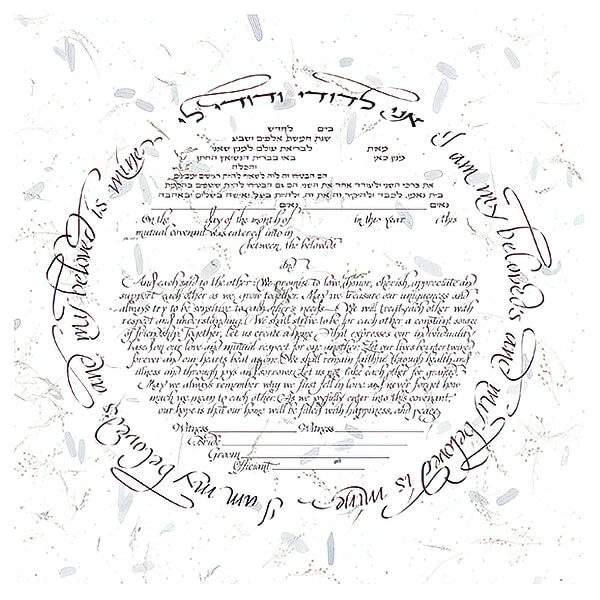 אני לדודי ודודי לי
I am my beloved's and my beloved is mine
I am my beloved's and my beloved is mine
בים לחדש
שנת חמשת אלפים ושבע
מאת לבריאת עולם למנין שאני
מנין כאן באו בברית הנשואין החתן
והכלה
On the day of the month of in this year , this
mutual covenant was entered into in
between the beloveds
and
And each said to the other: We promise to love, honor, cherish, appreciate and
support each other as we grow together. May we treasure our uniqueness and
always try to be sensitive to each other's needs. We will treat each other with
respect and understanding. We shall strive to be for each other a constant sense
of friendship. Together, let us create a home that expresses our individuality
based on our love and mutual respect for one another. Let our lives be intertwined
forever and our hearts beat as one. We shall remain faithful through health and
illness and through joys and sorrows. Let us not take each other for granted.
May we always remember why we first fell in love and never forget how
much we mean to each other. As we joyfully enter into this covenant,
our hope is that our home will be filled with happiness, and peace.
Witness Witness
Bride
Groom
Officiant